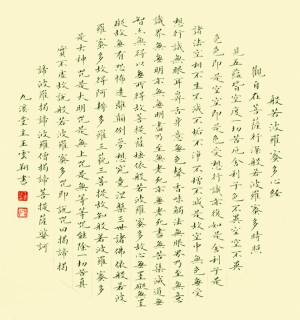 般若波羅蜜多心經
觀自在菩薩行深般若波羅蜜多時照
見五蘊皆空度一切苦厄舍利子色不異空空不異
色色即是空空即是色受想行識亦復如是舍利子是
諸法空相不生不滅不垢不淨不增不減是故空中無色無受
想行識無眼耳鼻舌身意無色聲香味觸法無眼界乃至無意
識界無無明亦無無明盡乃至無老死亦無老死盡無苦集滅道無
智亦無得以無所得故菩提薩埵依般若波羅蜜多故心無罣礙無罣
礙故無有恐怖遠離顛倒夢想究竟涅槃三世諸佛依般若波
羅蜜多故得阿耨多羅三藐三菩提故知般若波羅蜜多
是大神咒是大明咒是無上咒是無等等咒能除一切苦真
實不虛故說般若波羅蜜多咒即說咒曰揭諦揭
諦波羅揭諦波羅僧揭諦菩提薩婆訶
堂主王雲書